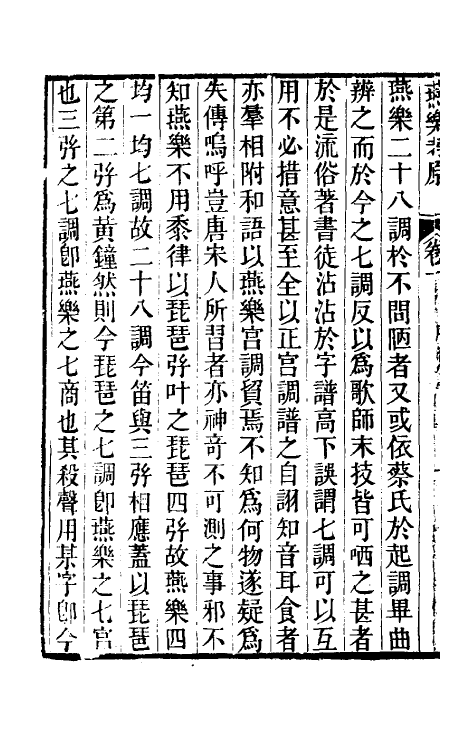 燕樂考原
卷一
燕樂二十八調於不問陋者又或依蔡氏於起調畢曲
辨之而於今之七調反以爲歌師末技皆可哂之甚者
於是流俗著書徒沾沾於字譜高下誤謂七調可以互
用不必措意甚至全以正宮調譜之自詡知音耳食者
亦羣相附和語以燕樂宮調貿焉不知爲何物遂疑爲
失傳嗚呼豈唐宋人所習者亦神奇不可測之事邪不
知燕樂不用黍律以琵琶弦叶之琵琶四弦故燕樂四
均一均七調故二十八調今笛與三弦相應蓋以琵琶
之第二弦爲黃鐘然則今琵琶之七調卽燕樂之七宮
也三弦之七調卽燕樂之七商也其殺聲用某字卽今